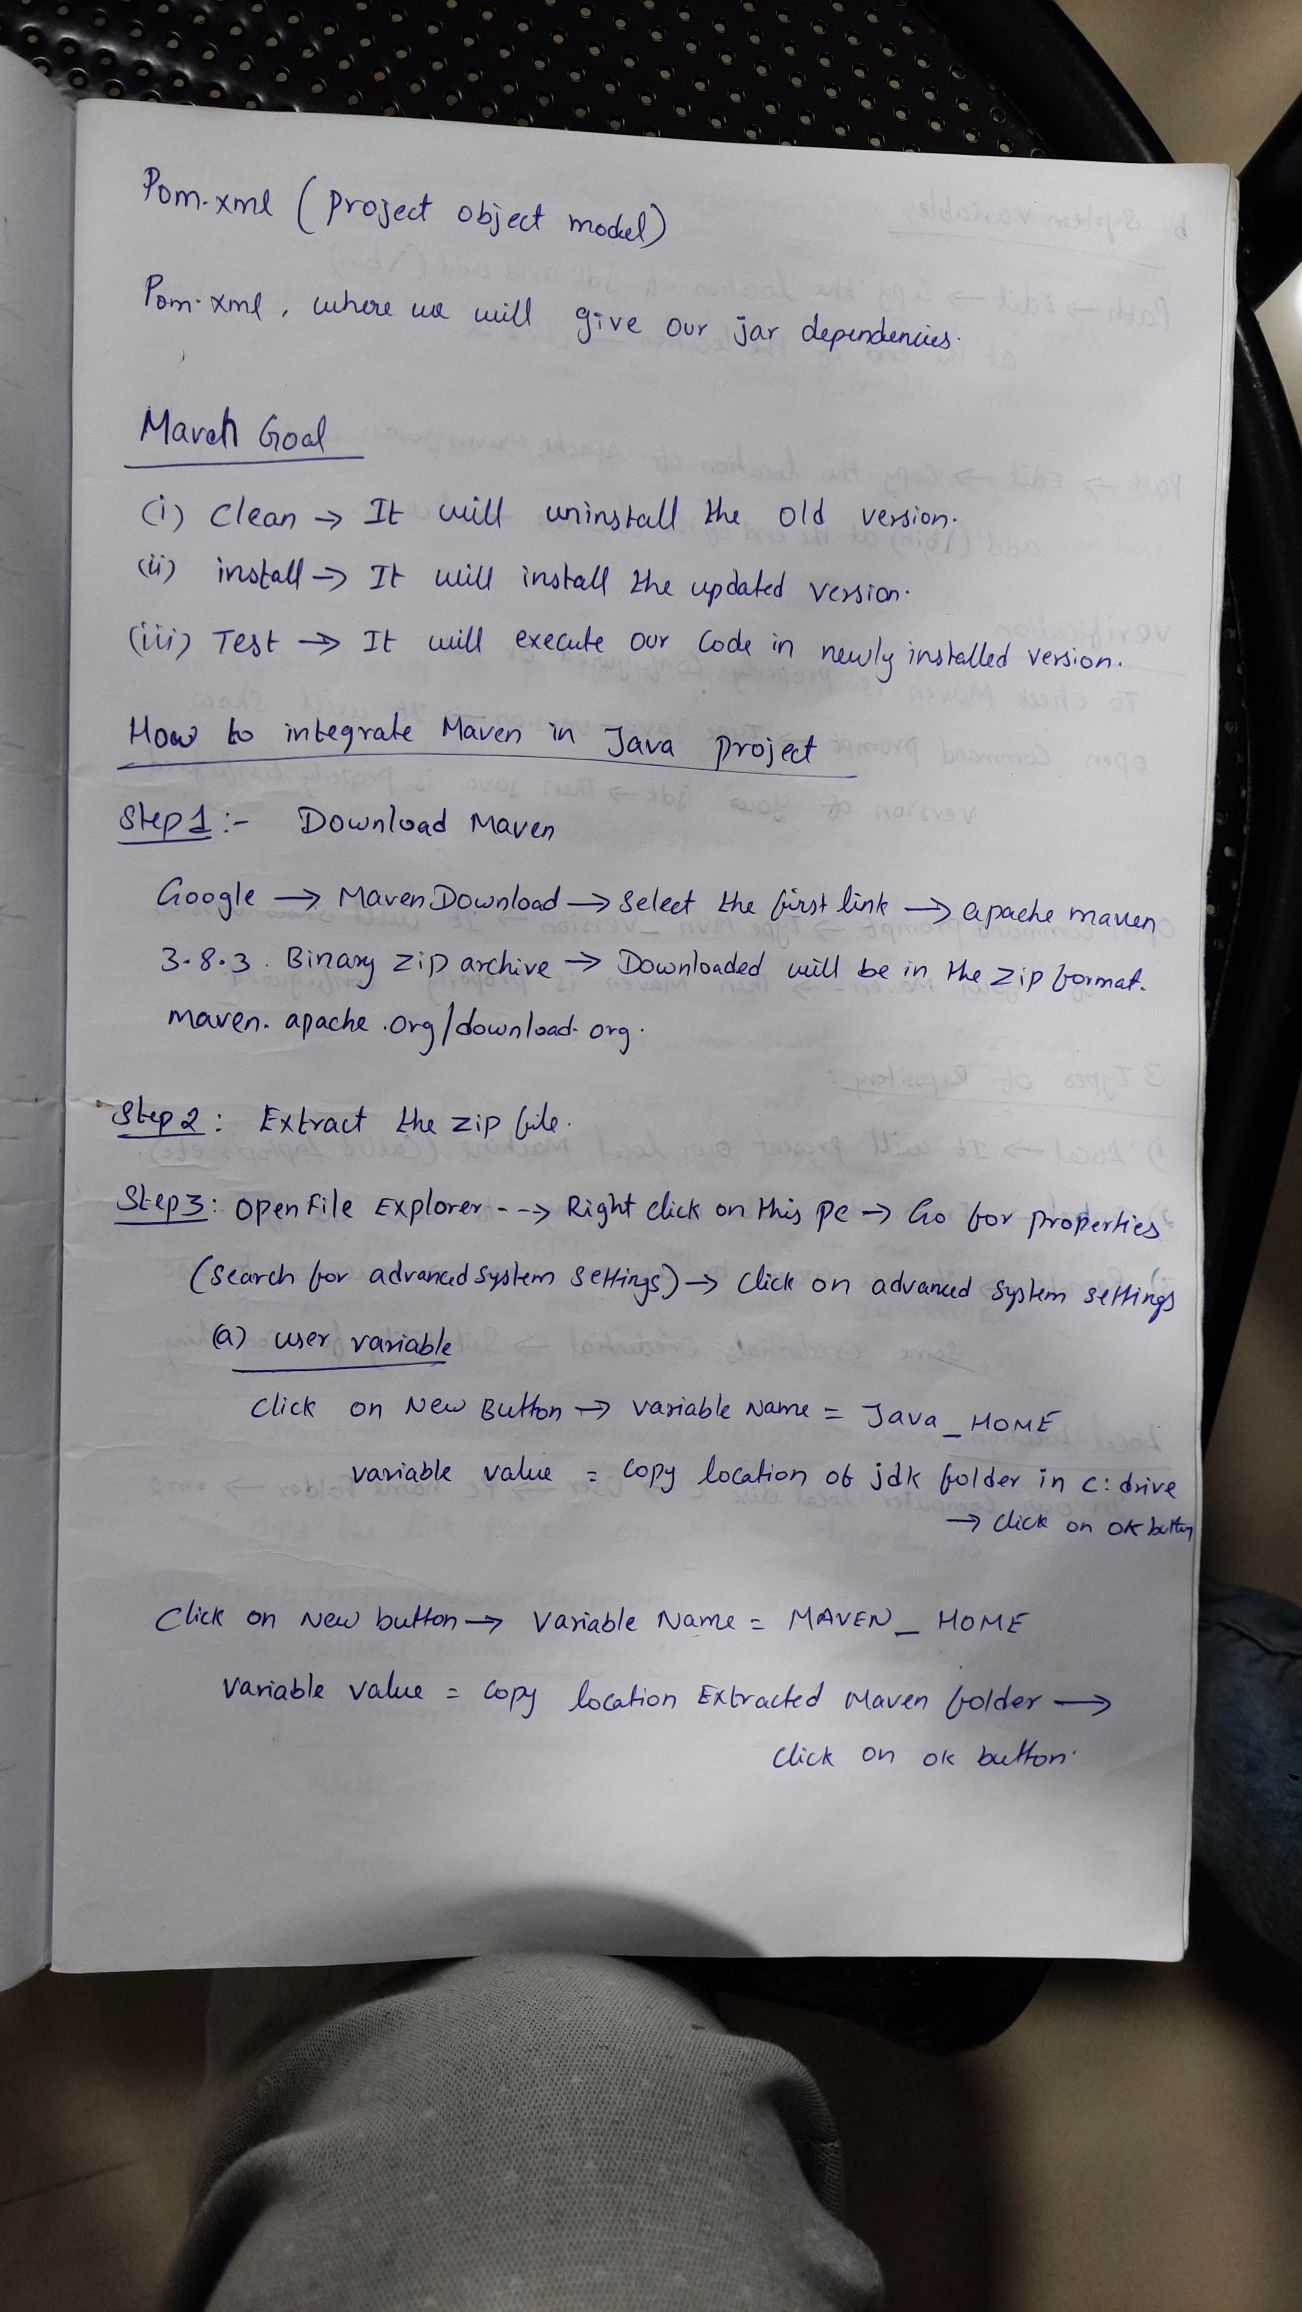 Pom.xml (project object model)
Pom.xml, where we will give our jar dependencies.
Maven Goal
(i) Clean → It will uninstall the old version.
(ii) install → It will install the updated version.
(iii) Test → It will execute our Code in newly installed version.
How to integrate Maven in Java project
Step 1 :- Download Maven
Google → Maven Download → Select the first link → apache maven
3.8.3. Binary zip archive → Downloaded will be in the zip format.
maven. apache .org/download.org.
Step 2 : Extract the zip file.
Step 3 : Open File Explorer --> Right click on this pc → Go for properties
(Search for advanced system settings) → Click on advanced system settings
(a) user variable
Click on New Button → variable Name = Java_HOME
variable value = Copy location of jdk folder in c: drive
→ click on ok button
Click on New button → Variable Name = MAVEN_HOME
Variable value = Copy location Extracted Maven folder →
Click on ok button.